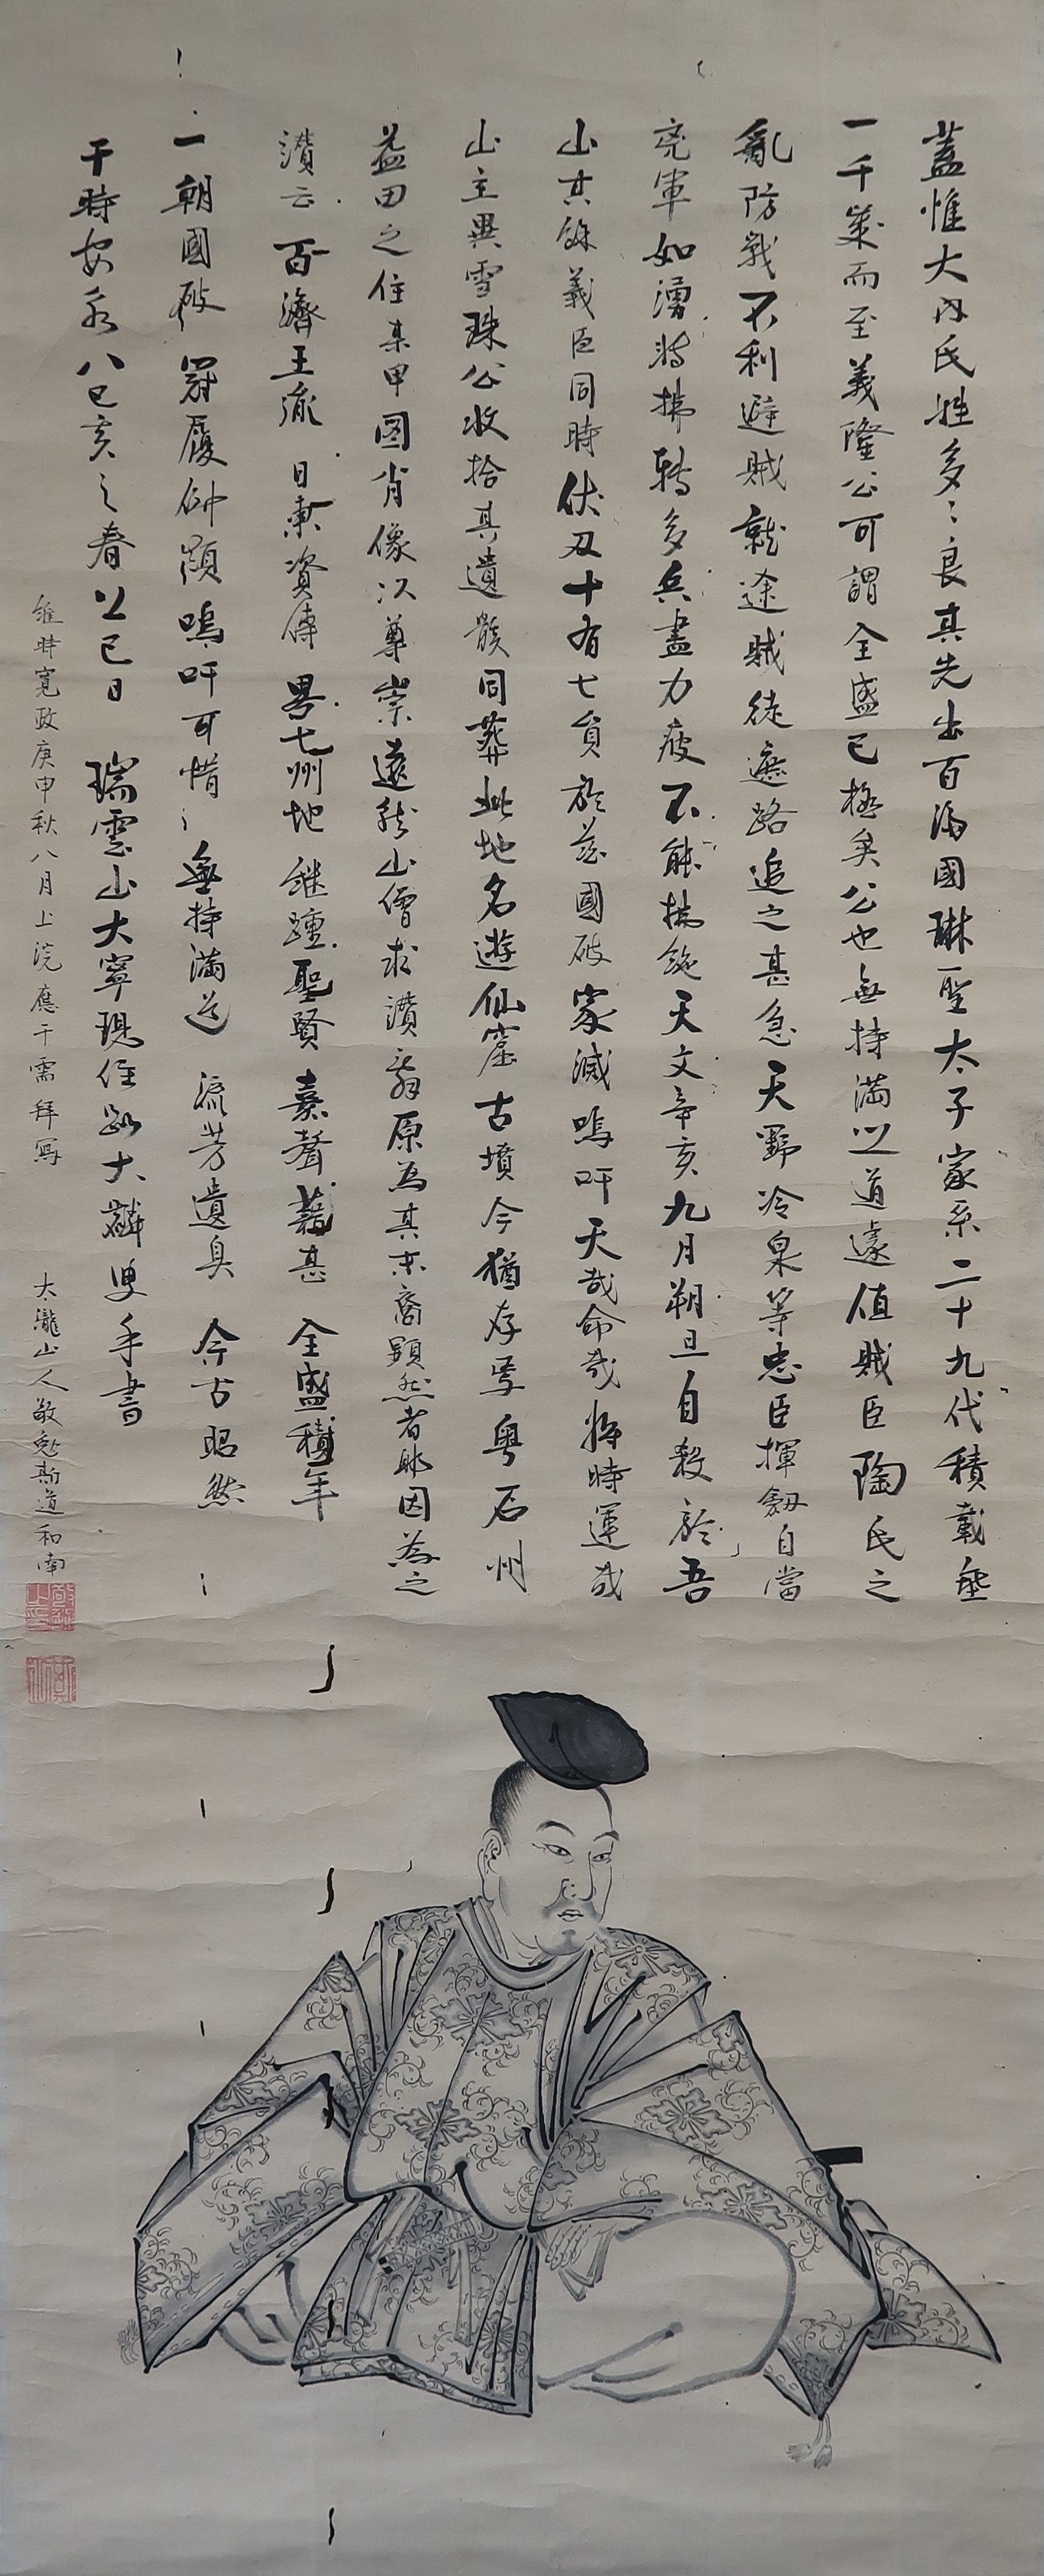 蓋惟大内氏姓多〻良其先出百済國琳聖太子家系二十九代積載垂
一千歳而至義隆公可謂全盛已極矣公也無持満之道遽值賊臣陶氏之
亂防戦不利避賊就途賊徒遮路追之甚急天野冷泉等忠臣揮釼自當
克軍如湧将拂轉多兵盡力疲不能 天文辛亥九月朔旦自殺於吾
山其餘義臣同時伏刃十有七員於茲國破家滅嗚吁天哉命哉将時運哉
山主異雪珠公收拾其遺骸同葬此地名遊仙窟古墳今猶存焉粤石州
益田之住某甲圖肖像以尊崇遠就山僧求讃辞原為其末裔顕然者耶因為之
讃云 百濟王胤 日東資傳 畧七州地 継蹱聖賢 嘉聲藉甚 全盛積年
一朝國破 冠履倒顛 嗚吁可惜〻 無持満道 流芳遺臭 今古昭然
干時安永八己亥之春上巳日 瑞雲山大寧現住 大麟叟手書
維時寛政庚申秋八月上浣應干需拜寫 大瀧山人敬 斯道和南